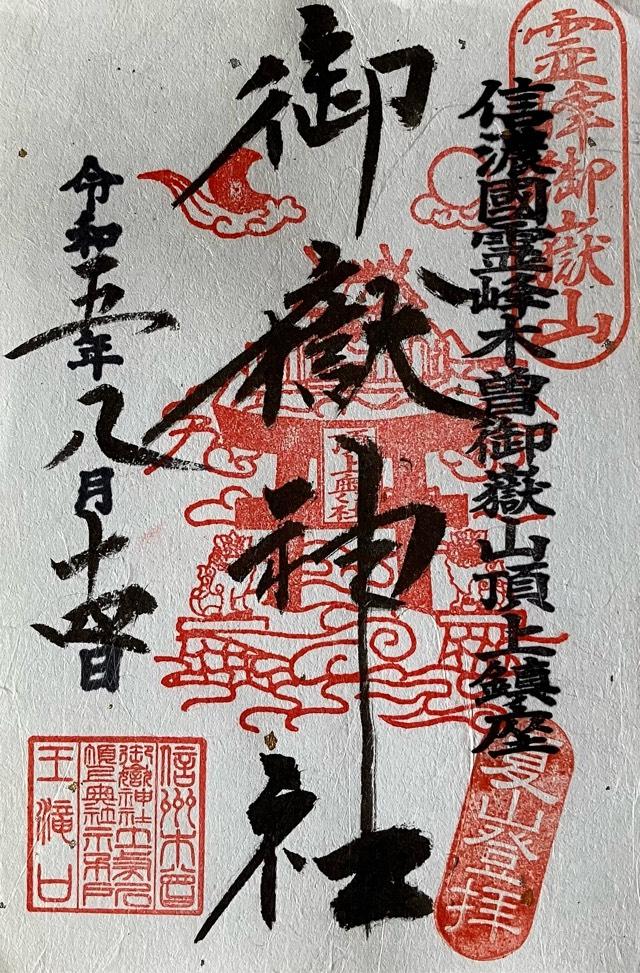 霊峰御嶽山
信濃國霊峰木曽御嶽山頂上鎮座
夏山登拝
御嶽神社
頂上奥社
令和五年八月十四日
信州木曽
王滝口